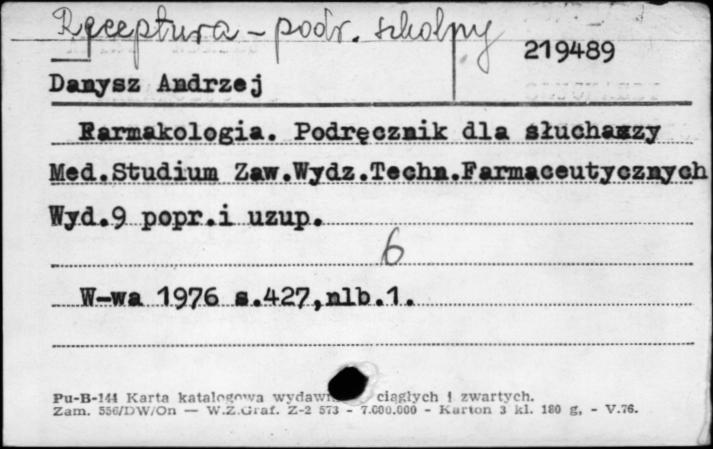 Receptura - podr. szkolny
219489
Danysz Andrzej
Farmakologia. Podręcznik dla słuchaczy
Med.Studium Zaw.Wydz.Techn.Farmaceutycznych
Wyd.9 popr.i uzup.
6
W-wa 1976 s.427,nlb.1.
Pu-B-144 Karta katalogowa ciągłych i zwartych.
Zam. 556/DW/On — W.Z.Graf. Z-2 573 - 7.000.000 - Karton 3 kl. 180 g. - V.76.